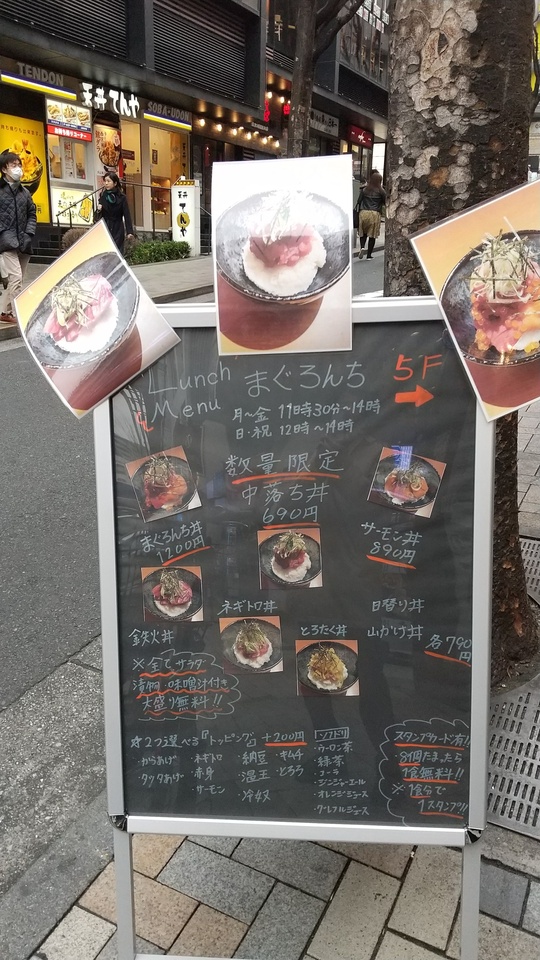 TENDON
天丼 てんや
SOBA・UDON
てんや
Lunch Menu まぐろんち 5F
月～金 11時30分～14時
日・祝 12時～14時
数量限定
中落ち丼
690円
まぐろんち丼
1200円
サーモン丼
890円
鉄火丼
ネギトロ丼
とろたく丼
日替り丼
山かけ丼
各790円
※全てサラダ
漬物・味噌汁付き
大盛り無料!!
2つ選べる『トッピング』+200円
・からあげ
・ネギトロ
・赤身
・サーモン
・納豆
・温玉
・冷奴
・キムチ
・とろろ
ソフトドリ
・ウーロン茶
・緑茶
・コーラ
・ジンジャーエール
・オレンジジュース
・グレフルジュース
スタンプカード有!!
8個たまったら
1食無料!!
※1食分で
1スタンプ!!